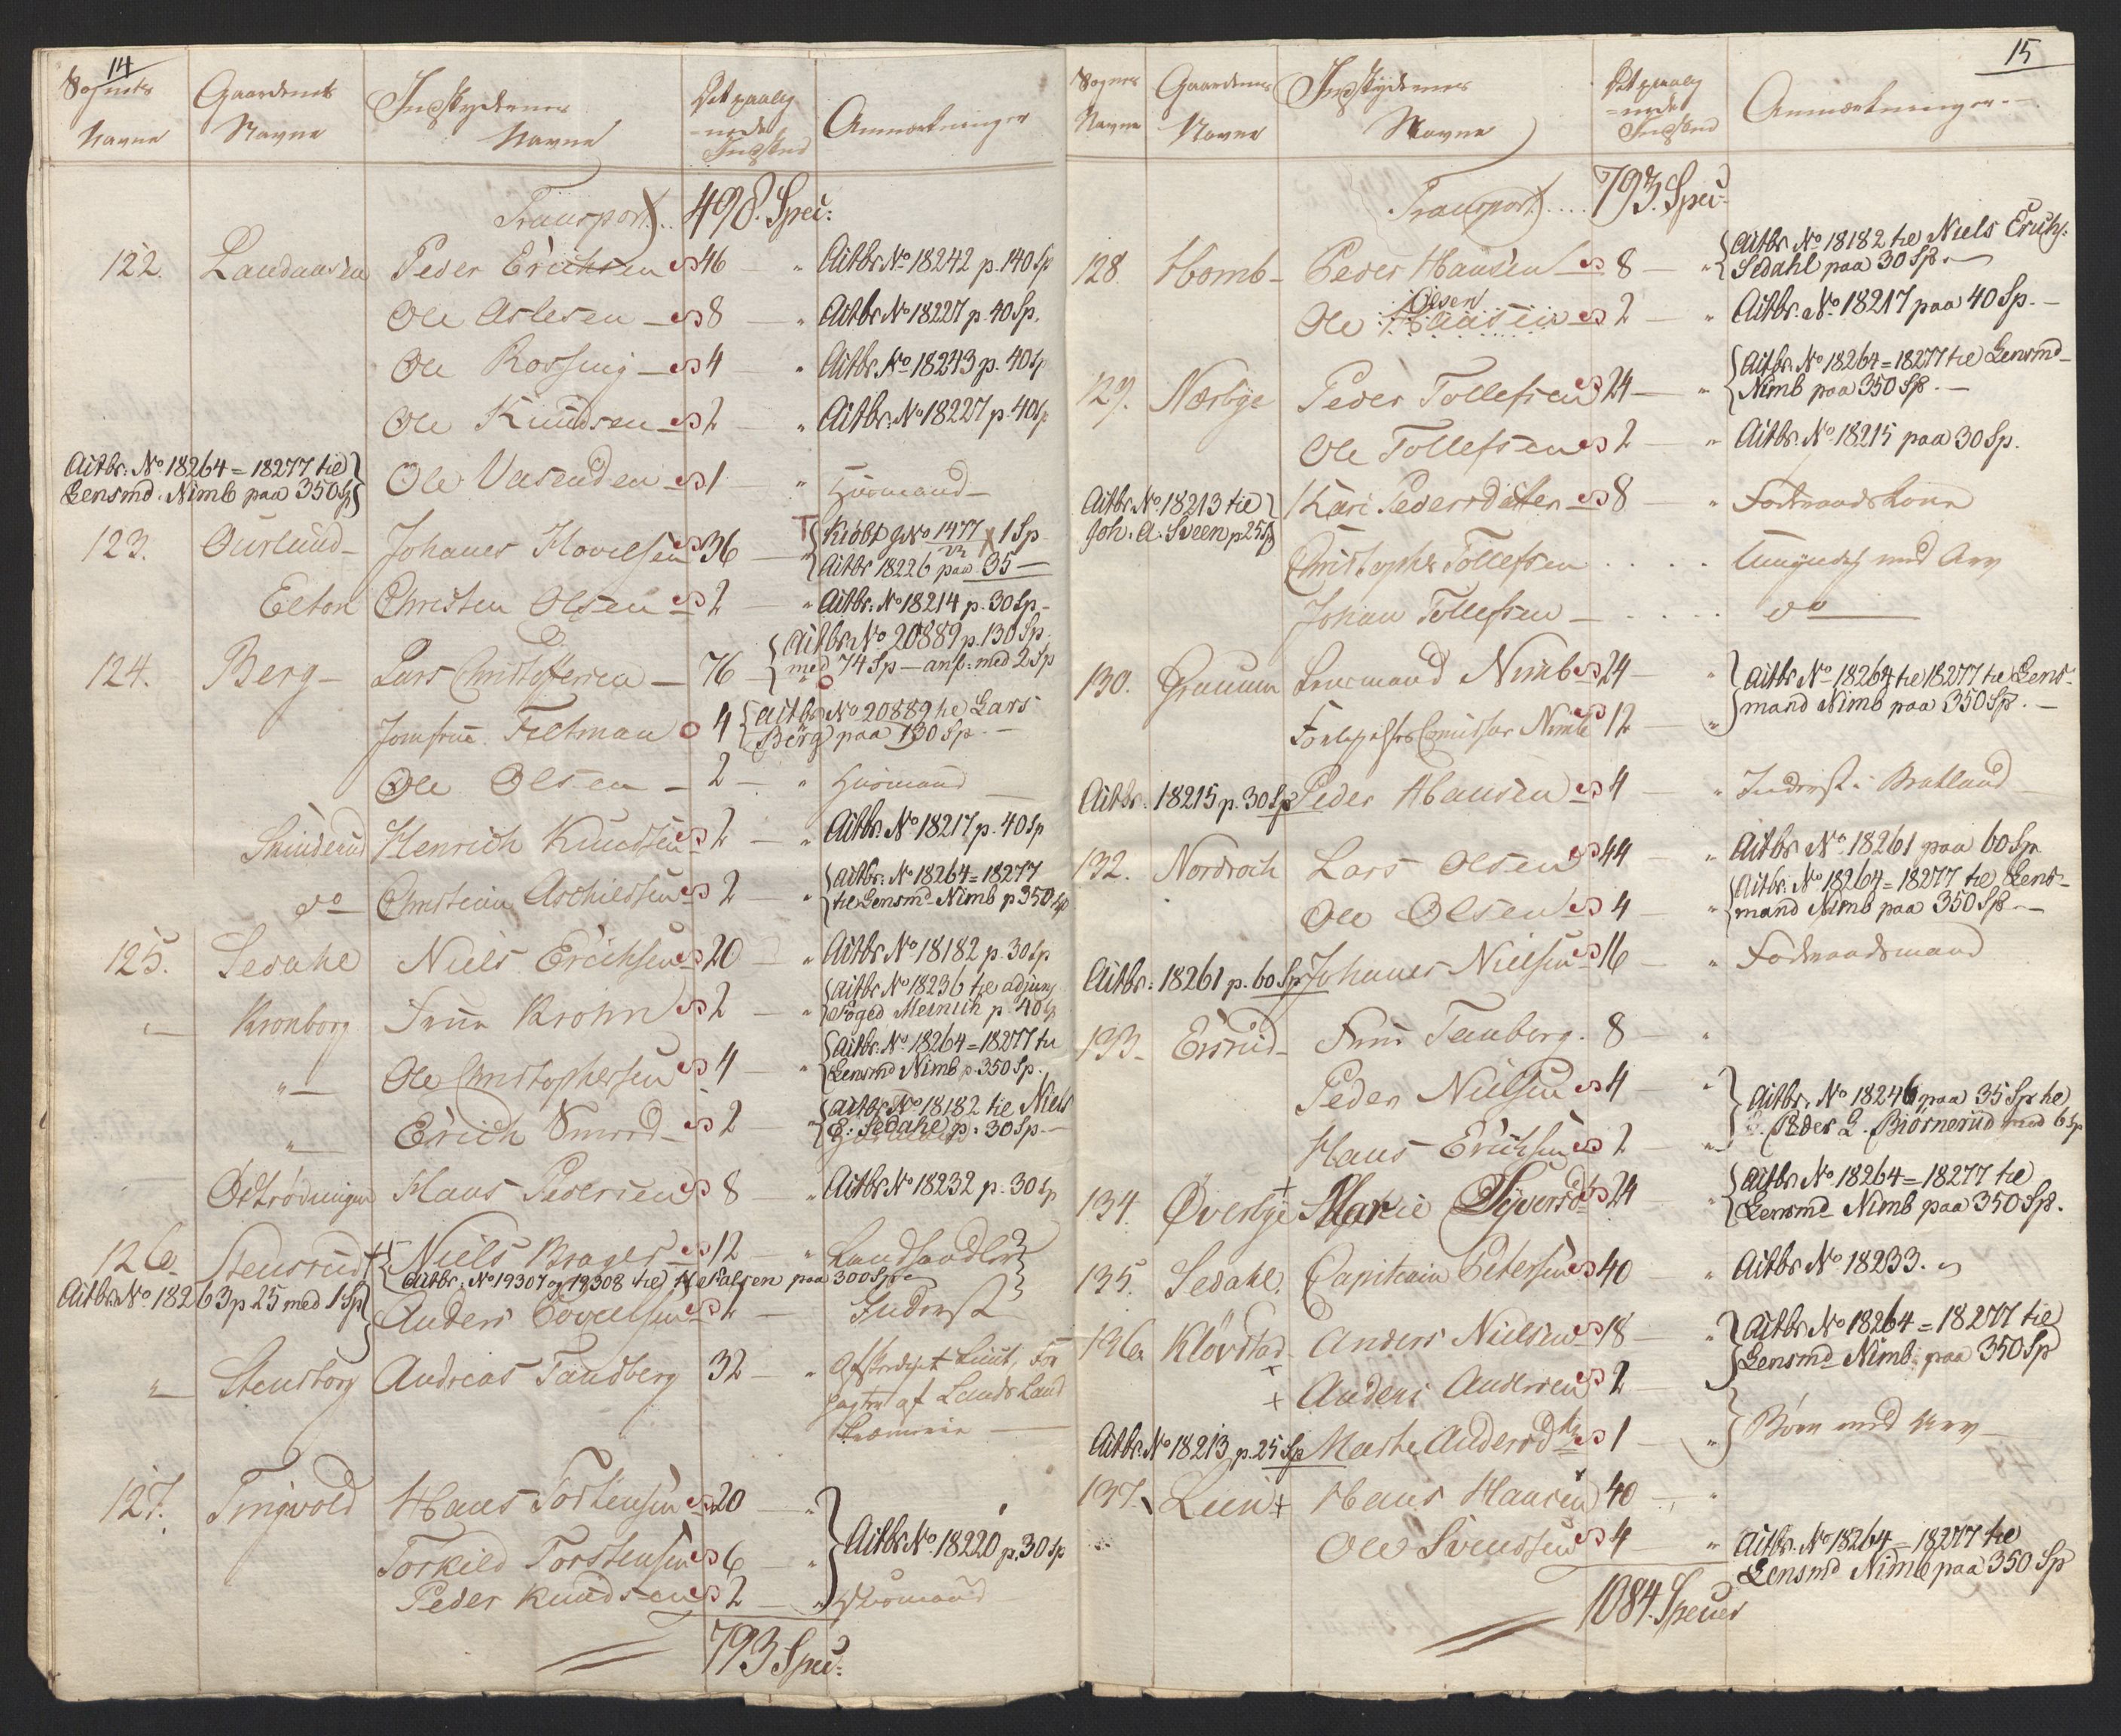 14
Sognets Navne
Gaardenes Navne
Indskydernes Navne
Det paalignede Indskud
Anmærkninger
Transport) .. 498. Spec:
122. Landaasen Peder Erichsen 46 — " Aitbr. No 18242 p. 140 Sp
Ole Aslesen — 8 — " Aitbr No 18227 p. 40 Sp.
Ole Rossing — 4 — " Aitbr. No 18243 p. 40 Sp
Ole Knudsen — 2 — " Aitbr: No 18227 p. 40 Sp
Aitbr: No 18264 = 18277 til
Lensmd. Nimb paa 350 Sp
Ole Vasenden — 1 " Huusmand —
123. Ourlund — Johanes Hovelsen 36 — Kiøbs g No 1477 1 Sp
Aitbr 18226 paa 35 —
Elton Christen Olsen — 2 — " Aitbr: No 18214 p. 30 Sp —
124. Berg — Lars Christoffersen — 76 Aitbr No 20889 p. 130 Sp
med 74 Sp — ans: med 2 Sp
Jomfrue Feltman 4 Aitbr No 20889 til Lars
Berg paa 130 Sp. —
Ole Olsen — 2 — " Huusmand —
Skinderud Henrich Knudsen 2 — " Aitbr. No 18217 p. 40 Sp
do Christian Aschildsen 2 — " Aitbr: No 18264 = 18277
til Lensmd Nimb p 350 Sp
125. Sedahl Niels Erichsen 20 — " Aitbr No 18182 p. 30 Sp
" — Kronborg Frue Krohn 2 — " Aitbr No 18236 til adjung
Foged Meinich p. 40 Sp
" — Ole Christophersen 4 — " Aitbr. No 18264 = 18277 til
Lensmd Nimb p. 350 Sp.
" — Erich Smed — 2 — " Aitbr No 18182 til Niels
E: Sedahl p: 30 Sp. —
Østrødningen Hans Pedersen 8 " Aitbr No 18232 p. 30 Sp
126. Stensrud Niels Brager — 12 — " Landhandler
Aitbr: No 19307 og 19308 til N Falsen paa 300 Sp
Aitbr No 18263 p 25 med 1 Sp
Anders Povelsen 2 — Inderst
" — Stensborg Andreas Tandberg 32 — " Afskediget Lieut, For
pagter af Lands Land
127. Tingvold Hans Torstensen 20 — "
Torkild Torstensen 6 — " Aitbr No 18220 p. 30 Sp
Peder Knudsen 2 — " Huusmand
793 Spec:
15
Sognes Navne
Gaardenes Navne
Indskydernes Navne
Det paalignede Indskud
Anmærkninger. —
Transport) .... 793. Spec:
128. Homb — Peder Hansen — 8 — " Aitbr No 18182 til Niels Erichs:
Sedahl paa 30 Sp. —
Olsen
Ole Hansen 2 — " Aitbr. No 18217 paa 40 Sp. —
129. Nørbye Peder Tollefsen 24 — " Aitbr. No 18264 = 18277 til Lensmd
Nimb paa 350 Sp. —
Ole Tollefsen 2 — " Aitbr. No 18215 paa 30 Sp.
Aitbr. No 18213 til
Joh. A. Sveen p 25 Sp
Kari Pedersdatter — 8 — " Føderaadskone
Christopher Tollefsen . . . . . Umyndig med Arv
Johan Tollefsen — . . . . do —
130. Grauum Lensmand Nimb 24 — " Aitbr No 18264 til 18277 til Lens-
mand Nimb paa 350 Sp. —
Nimb 12 — "
Aitbr. 18215 p. 30 Sp Peder Hansen — 4 — " Inderst. Bratland
132. Nordroch Lars Olsen 44 — " Aitbr No 18261 paa 60 Sp.
Ole Olsen 4 — " Aitbr. No 18264 = 18277 til Lens-
mand Nimb paa 350 Sp. —
Aitbr: 18261 p. 60 Sp Johanes Nielsen 16 — " Føderaadsmand
133. Eisrud — Frue Tanberg. 8 — "
Peder Nielsen 4 — " Aitbr. No 18246 paa 35 Sp til
Peder L. Biørnerud med 6 Sp
Hans Erichsen 2 — "
134. Øverbye Marie Syversd 24 — " Aitbr No 18264 = 18277 til
Lensmd Nimb paa 350 Sp.
135. Sedahl. Capitain Petersen 40 " Aitbr No 18233.
136. Kløvstad Anders Nielsen 18 — " Aitbr No 18264 = 18277 til
Lensmd Nimb paa 350 Sp
Anders Andersen 2
Aitbr No 18213 p. 25 Sp Marthe Andersd 1 — " Børn med Arv —
137. Lien Hans Hansen 40 — "
Ole Svendsen 4 " Aitbr. No 18264 = 18277 til
Lensmd Nimb paa 350 Sp
1084. Specier